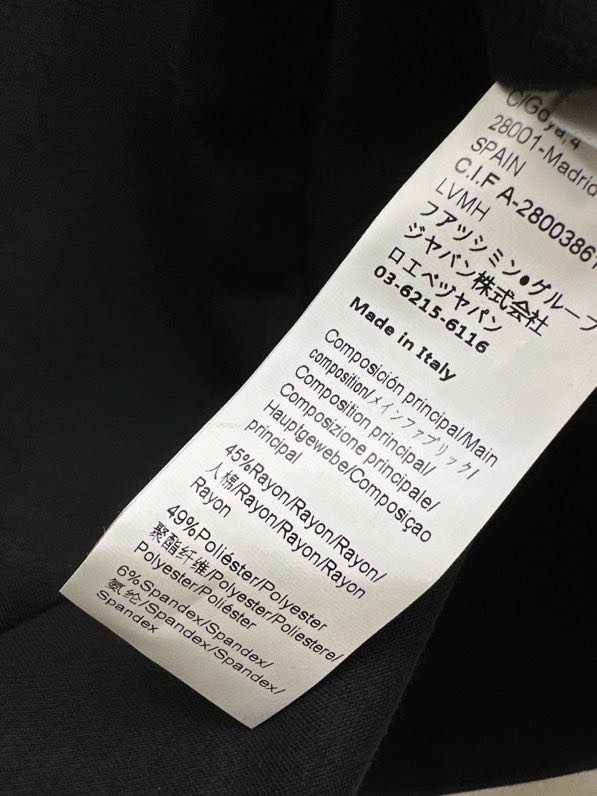 C/Goya,4
28001-Madrid
SPAIN
C.I.F A-28003861
LVMH
フアツシミン●グループ
ジヤバン株式会社
ロエベヅヤパン
03-6215-6116
Made in Italy
Composición principal/Main
composition/メインファブリック/
Composition principal/
Composizione principale/
Hauptgewebe/Composiçao
principal
45%Rayon/Rayon/Rayon/
人棉/Rayon/Rayon/Rayon/
Rayon
49%Poliéster/Polyester
聚酯纤维/Polyester/Poliestere/
Polyester/Poliéster
6%Spandex/Spandex/
氨纶/Spandex/Spandex/
Spandex